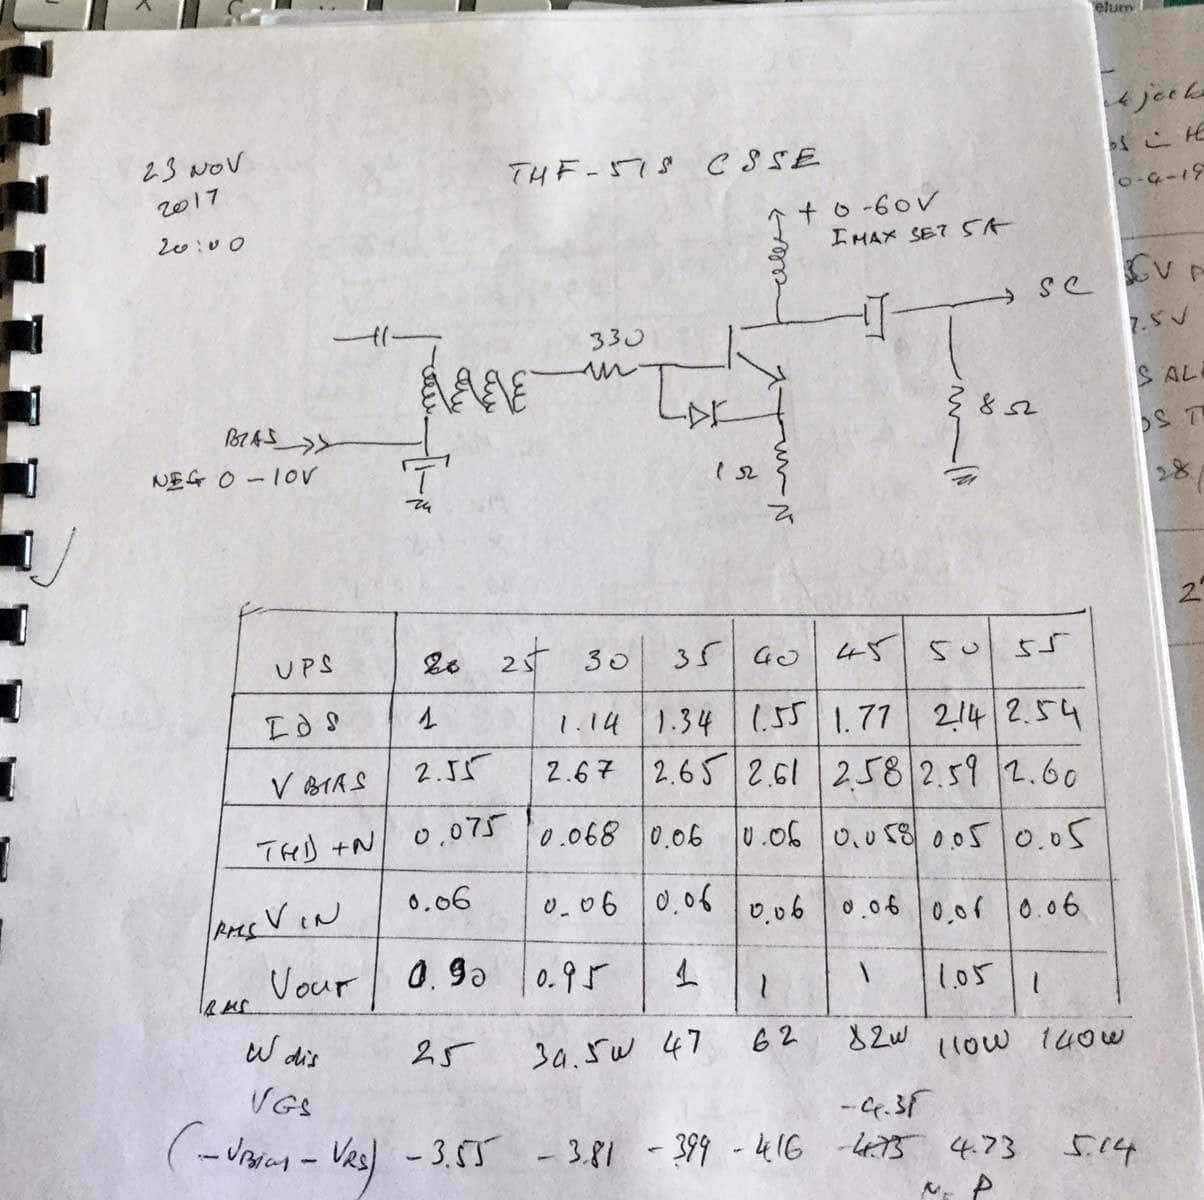 elum
23 NOV
2017
20:00
THF-51S CSSE
+ 0-60V
IMAX SET 5A
SC
330
8Ω
1Ω
BIAS
NEG 0-10V
VPS 20 25 30 35 40 45 50 55
IDS 1 1.14 1.34 1.55 1.77 2.14 2.54
V BIAS 2.55 2.67 2.65 2.61 2.58 2.59 2.60
THD+N 0.075 0.068 0.06 0.06 0.058 0.05 0.05
RMS VIN 0.06 0.06 0.06 0.06 0.06 0.06 0.06
RMS Vout 0.90 0.95 1 1 1 1.05 1
W dis 25 34.5W 47 62 82W 110W 140W
VGS -4.35
(-VBIAS - VRS) -3.55 -3.81 -3.99 -4.16 -4.75 4.73 5.14